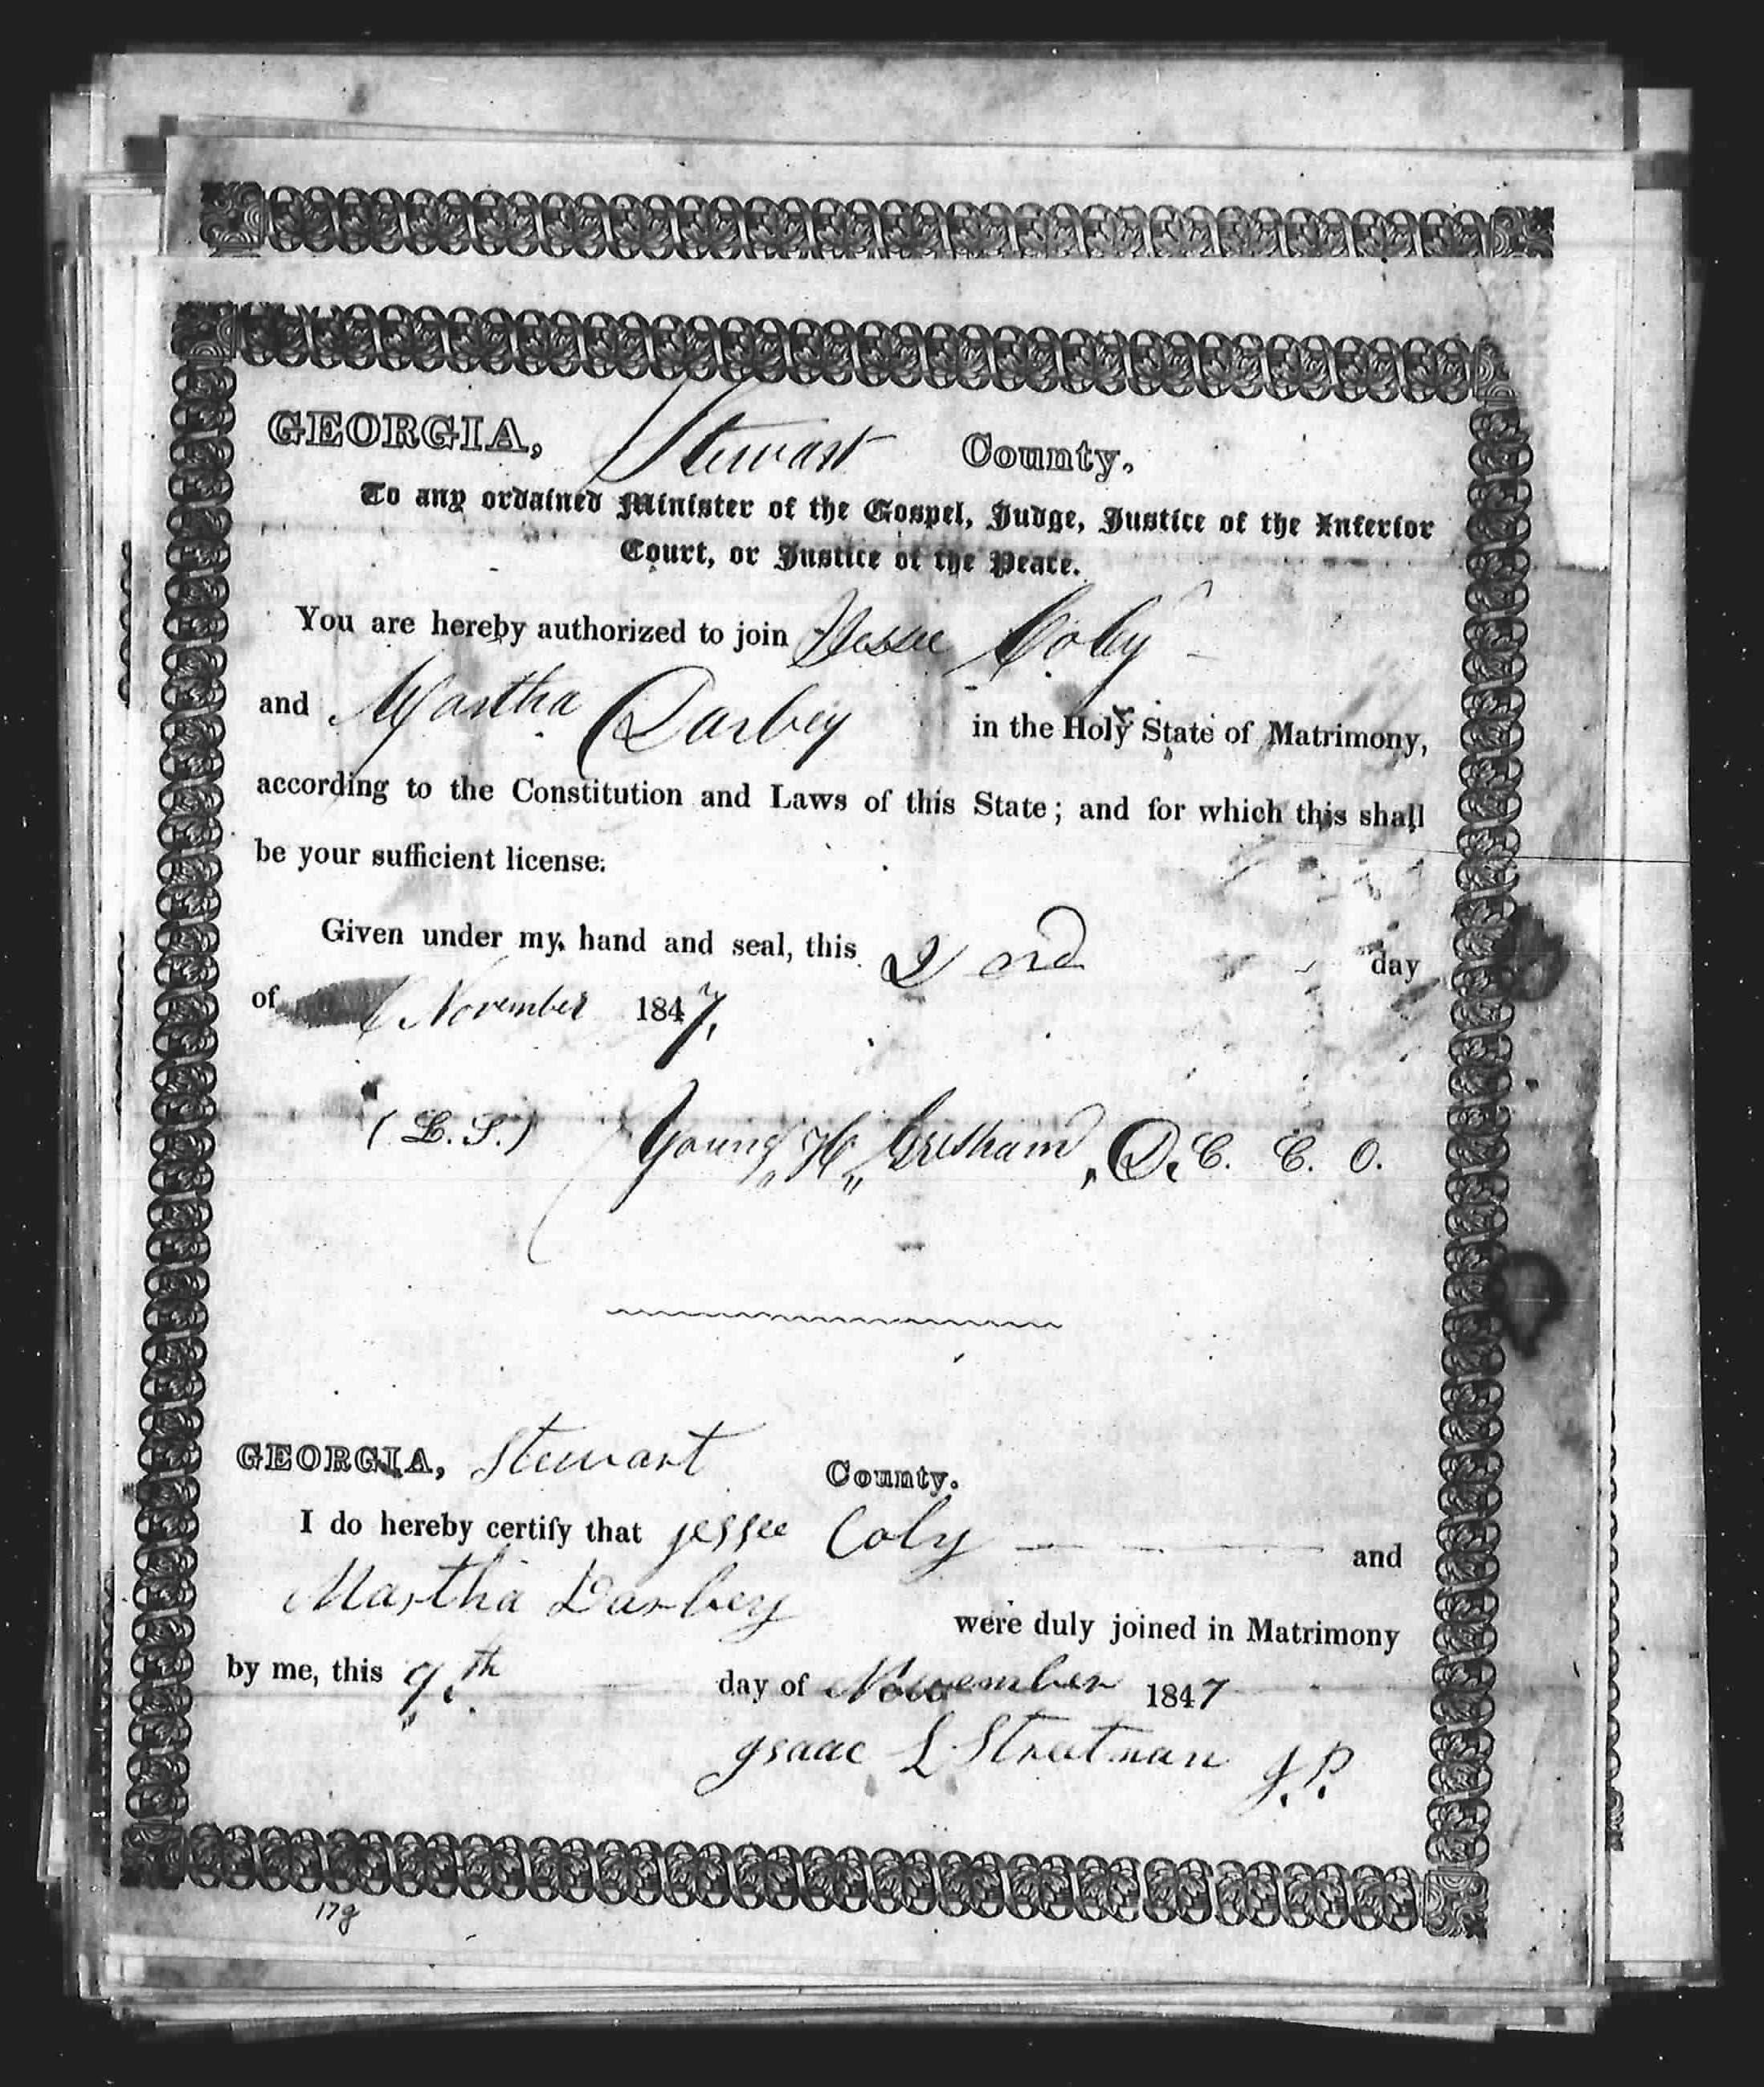 GEORGIA, Stewart County.
To any ordained Minister of the Gospel, Judge, Justice of the Inferior
Court, or Justice of the Peace.
You are hereby authorized to join Jessee Coley
and Martha Darbey in the Holy State of Matrimony,
according to the Constitution and Laws of this State; and for which this shall
be your sufficient license.
Given under my hand and seal, this 2nd day
of November 1847,
(L. S.) Young, H,, Gresham, D. C. C. O.
GEORGIA, Stewart County.
I do hereby certify that Jessee Coly and
Martha Darbey were duly joined in Matrimony
by me, this 9th day of November 1847
Isaac L Streetman J.P.